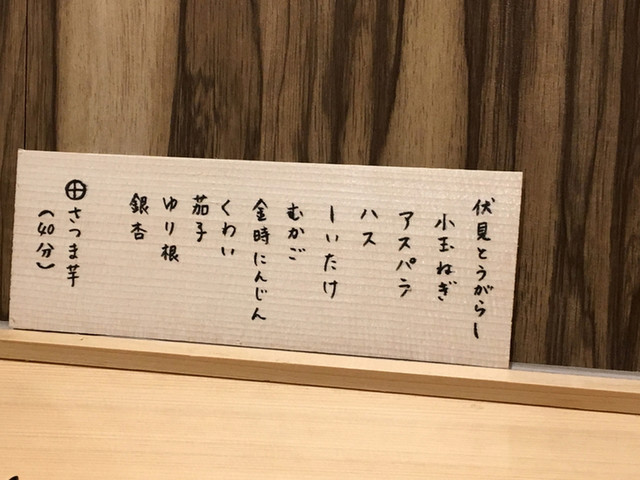 伏見とうがらし
小玉ねぎ
アスパラ
ハス
しいたけ
むかご
金時にんじん
くわい
茄子
ゆり根
銀杏
⊕さつま芋
(40分)